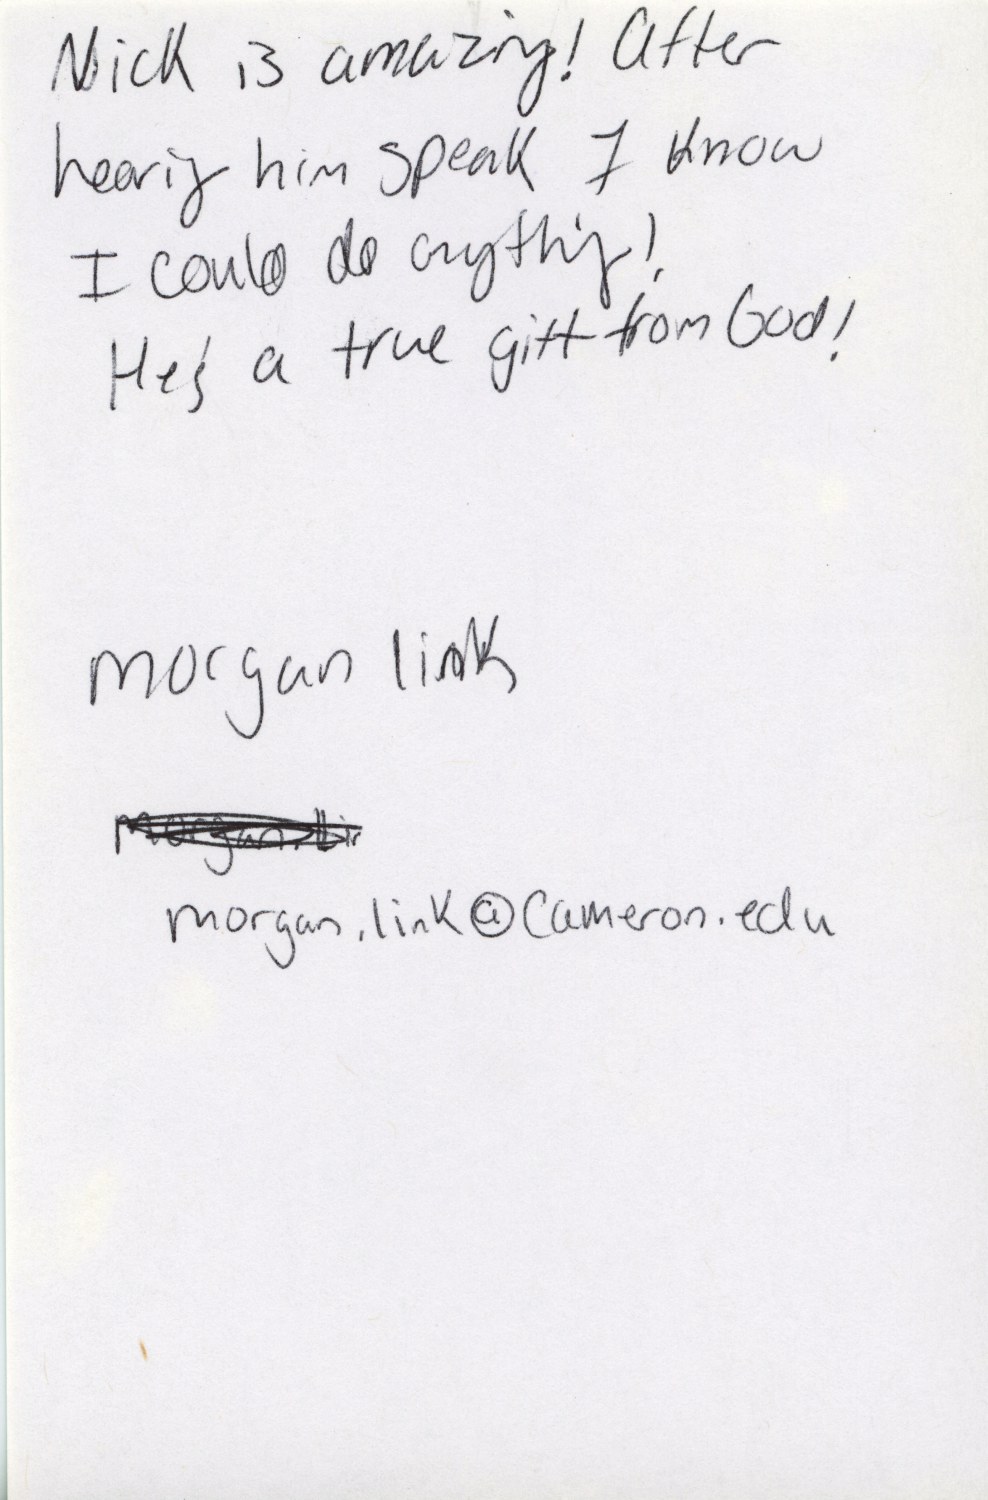 Nick is amazing! After
hearing him speak I know
I could do anything!
He's a true gift from God!
morgan link
morgan.lin
morgan.link@Cameron.edu